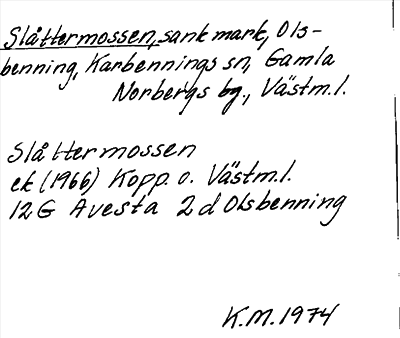 Slåttermossen, sank mark, Ols-
benning, Karbennings sn, Gamla
Norbergs bg., Västm.l.
Slåttermossen
ek (1966) Kopp. o. Västm.l.
12G Avesta 2d Olsbenning
K.M. 1974